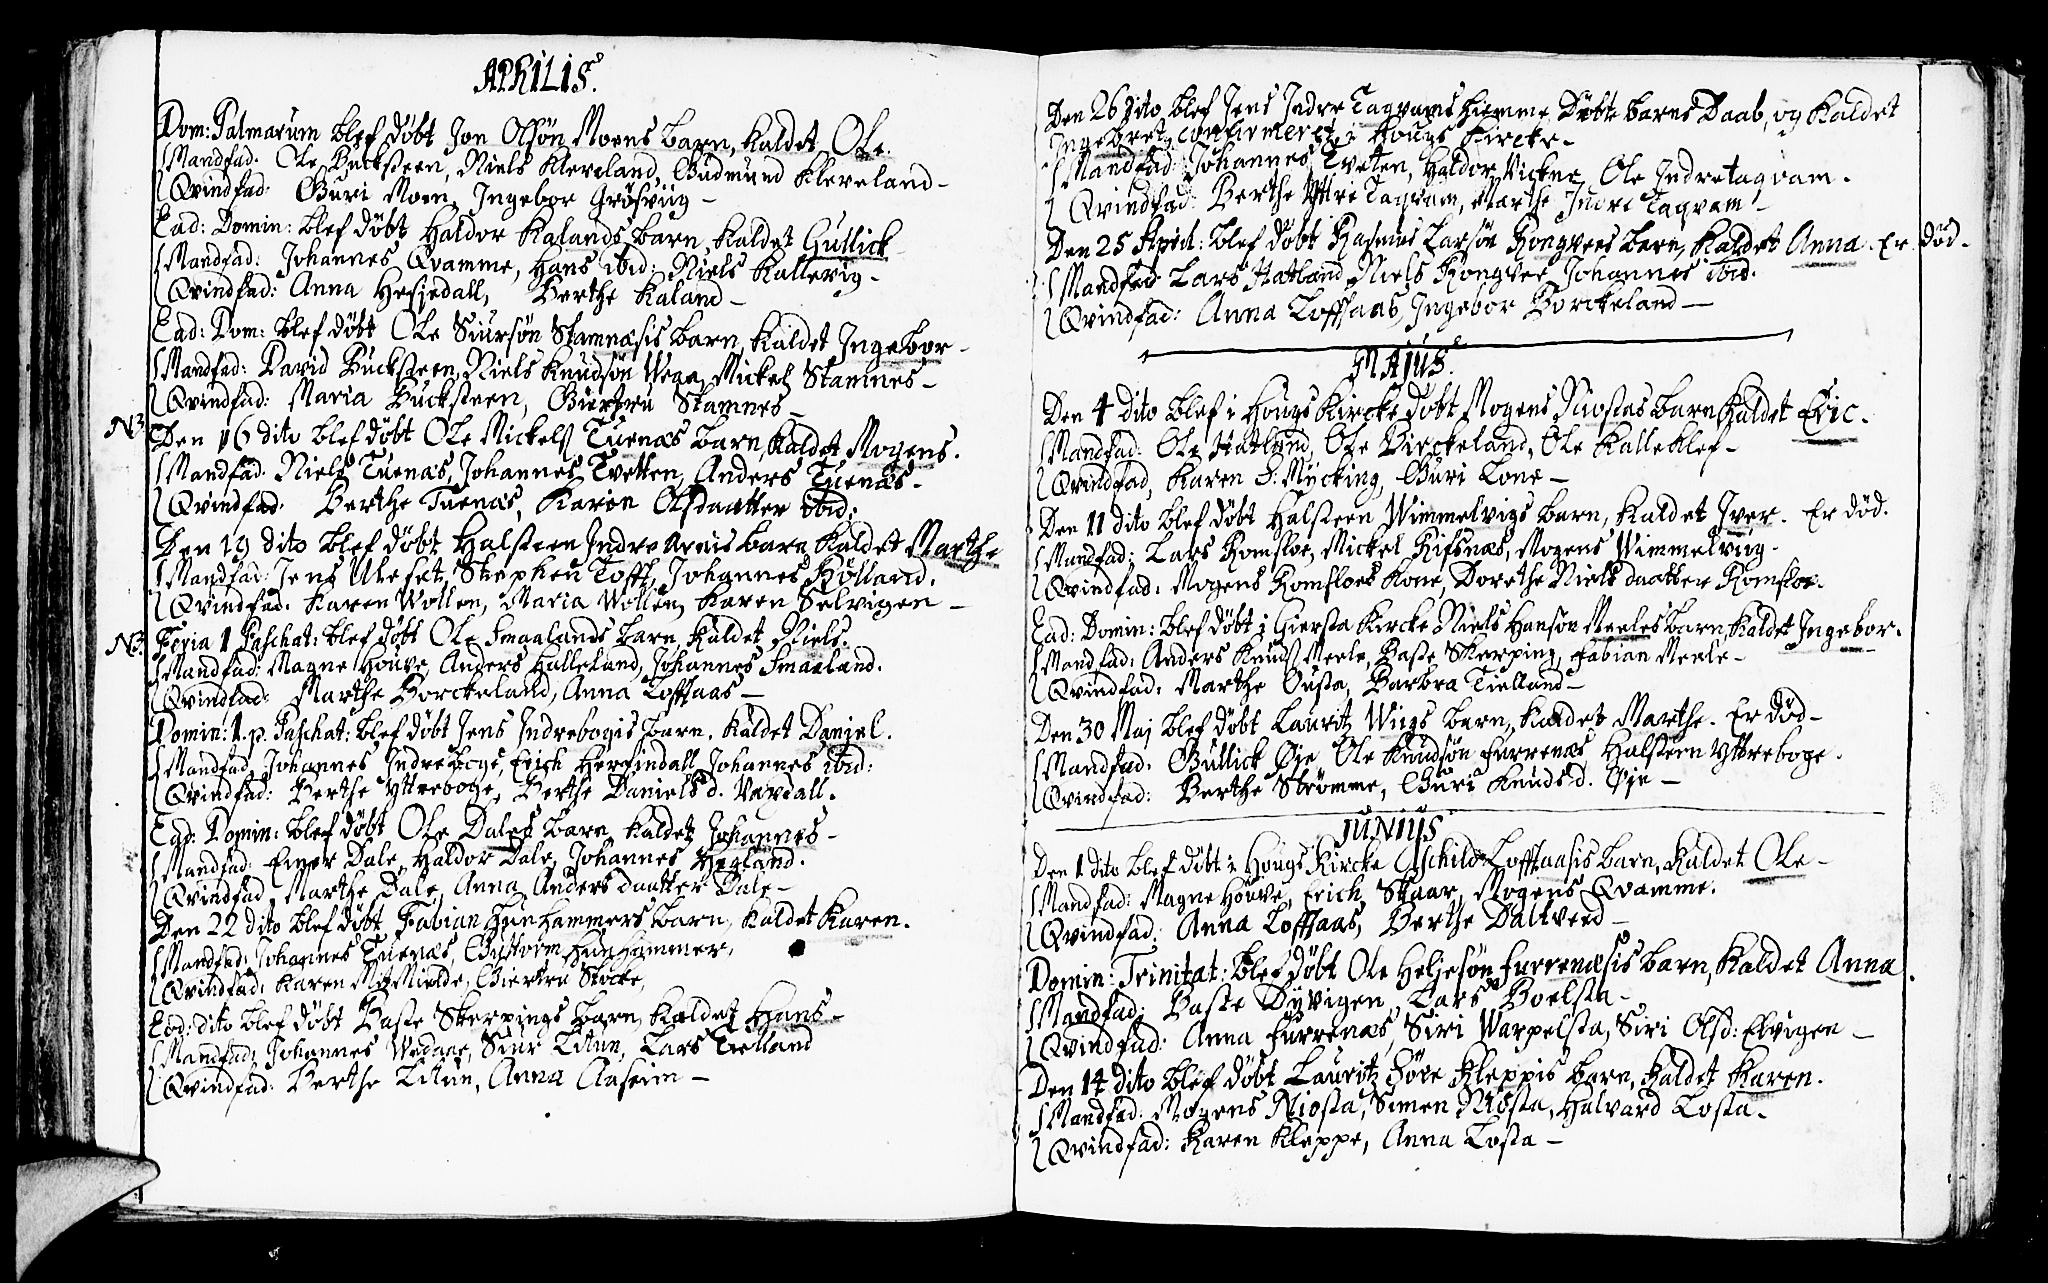 APRILIS.
Dom: Palmarum blef døbt Jon Olsøn Moens barn, kaldet Ole.
Mandfad. Ole Bucksteen, Niels Kleveland, Gudmund Kleveland -
Qvindfad: Guri Moen, Ingebor Grøsviig -
Ead: Domin: blef døbt Haldor Kalands barn, kaldet Gullick
Mandfad: Johannes Qvamme, Hans ibid: Niels Kallevig -
Qvindfad: Anna Hesjedall, Berthe Kaland -
Ead: Dom: blef døbt Ole Siursøn Stamnæsis barn, kaldet Ingebor -
Mandfad: David Bucksteen, Niels Knudsøn Mickel Stamnes -
Qvindfad: Maria Bucksteen, Giertru Stamnes -
NB Den 16 dito blef døbt Ole Mickels Tuenæs barn, kaldet Mogens.
Mandfad. Niels Tuenæs, Johannes Tvetten, Anders Tuenæs -
Qvindfad. Berthe Tuenæs, Karen Olsdaatter ibid:
Den 19 dito blef døbt Halsteen Indre barn, kaldet Marthe
Mandfad: Jens Uleset, Stephen Toft, Johannes Holland.
Qvindfad. Karen Wollen, Maria Wollen, Karen Selvigen -
NB. Feria 1 Paschat: blef døbt Ole Smaalands barn, kaldet Niels.
Mandfad: Magne Houve, Anders Halleland, Johannes Smaaland.
Qvindfad: Marthe Borckeland, Anna Lofftaas -
Domin: 1. p. Paschat: blef døbt Jens Indrebogis barn, kaldet Daniel.
Mandfad, Johannes Indreboge, Erich Herfindall, Johannes ibid:
Qvindfad: Berthe Yttreboge, Berthe Daniels d. Vaxdall.
Ead: Domin: blef døbt Ole Dales barn, kaldet Johannes -
Mandfad: Einer Dale, Haldor Dale, Johannes Hegland.
Qvindfad, Marthe Dale, Anna Anders daatter Dale -
Den 22 dito blef døbt Fabian Hunhammers barn, kaldet Karen.
Mandfad: Johannes Tuenæs, Guttorm Hunhammer,
Qvindfad: Karen Giertru Stocke,
Eod: dito blef døbt Baste Skerpings barn, kaldet Hans -
Mandfad: Johannes Wedaae, Siur Tittun, Lars Tielland
Qvindfad: Berthe Tittun, Anna Aaseim -
Den 26 dito blef Jens Indre Taqvams hiemme Døbte barns Daab, og kaldet
Ingebret, confirmeret, i Hougs Kircke -
Mandfad: Johannes Tveten, Haldor Vickne, Ole Indretaqvam.
Qvindfad: Berthe Yttre Taqvam, Marthe Indre Taqvam -
Den 25 April: blef døbt Rasmus Larsøn Rongvees barn, kaldet Anna. Er død -
Mandfad: Lars Hatland, Niels Rongvee, Johannes ibid.
Qvindfad: Anna Lofftaas, Ingebor Borckeland -
MAJUS.
Den 4 dito blef i Hougs Kircke døbt Mogens Niostas barn kaldet Eric.
Mandfad. Ole Hatland, Ole Birckeland, Ole Kalleklef -
Qvindfad, Karen S: Mycking, Guri Lone -
Den 11 dito blef døbt Halsteen Wimmelvigs barn, kaldet Iver. Er død.
Mandfad: Lars Romsloe, Mickel Rifsnæs, Mogens Wimmelviig -
Qvindfad: Mogens Romsloes Kone, Dorethe Niels daatter Romsloe -
Ead: Domin: blef døbt i Giersta Kircke Niels Hansøn Meeles barn, kaldet Ingebor.
Mandfad: Anders Knuds Meele, Baste Skerping, Fabian Meele -
Qvindfad: Marthe Ousta, Barbra Tielland -
Den 30 Maj blef døbt Lauritz Wiigs barn, kaldet Marthe. Er død -
Mandfad: Gullick Øie, Ole Knudsøn Furrenæs, Halsteen Yttreboge.
Qvindfad: Berthe Strømme, Guri Knuds d. Øie -
JUNIUS
Den 1 dito blef døbt i Hougs Kircke Aschild Lofftaasis barn, kaldet Ole -
Mandfad: Magne Houve, Erich Skaar, Mogens Qvamme.
Qvindfad: Anna Lofftaas, Berthe Daltveed -
Domin: Trinitat: blef døbt Ole Heljesøn Furrenæsis barn, kaldet Anna.
Mandfad: Baste Dyvigen, Lars Boelsta -
Qvindfad: Anna Furrenæs, Siri Warpelsta, Siri Olsd: Elvigen -
Den 14 dito blef døbt Lauritz Føre Kleppis barn, kaldet Karen.
Mandfad: Mogens Niosta, Simen Niosta, Halvard Losta -
Qvindfad: Karen Kleppe, Anna Losta -